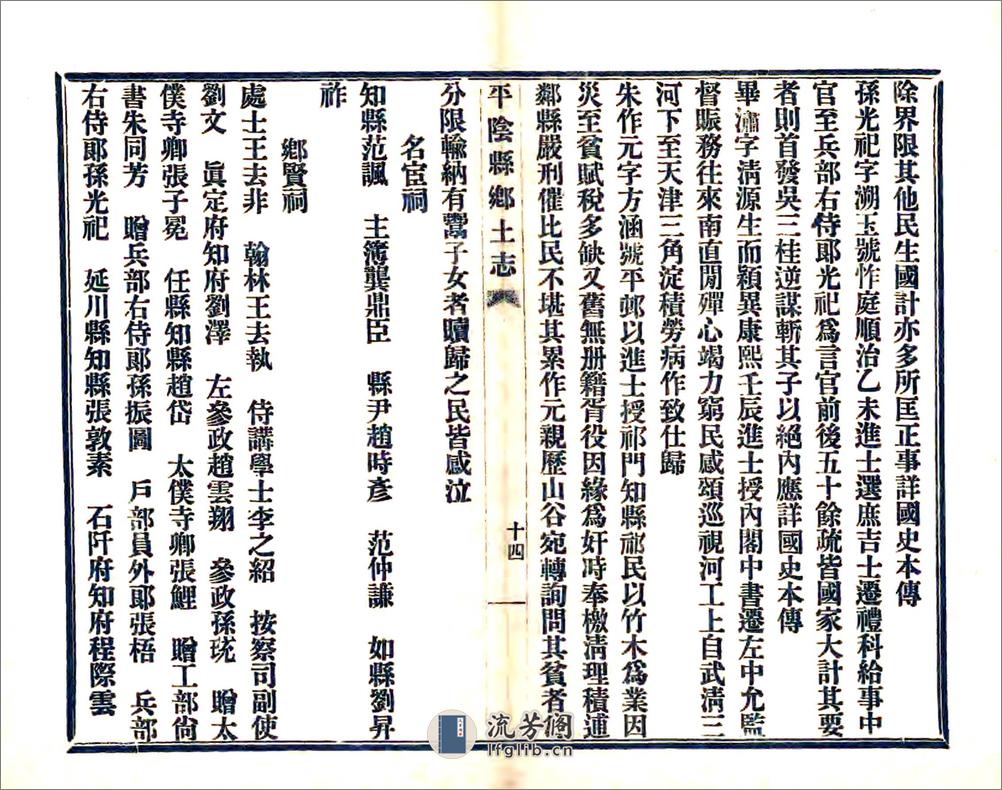 除界限其他民生國計亦多所匡正事詳國史本傳
孫光祀字溯玉號怍庭順治乙未進士選庶吉士遷禮科給事中
官至兵部右侍郎光祀爲言官前後五十餘疏皆國家大計其要
者則首發吳三桂逆謀斬其子以絕內應詳國史本傳
畢瀟字淸源生而穎異康熙壬辰進士授內閣中書遷左中允監
督賑務往來南直閒殫心竭力窮民感頌巡視河工上自武淸三
河下至天津三角淀積勞病作致仕歸
朱作元字方涵號平邨以進士授祁門知縣祁民以竹木爲業因
災至貧賦稅多缺又舊無册籍胥役因緣爲奸時奉檄淸理積逋
鄰縣嚴刑催比民不堪其累作元親歷山谷宛轉詢問其貧者
平陰縣鄉土志
十四
分限輸納有鬻子女者贖歸之民皆感泣
名宦祠
知縣范諷 主簿龔鼎臣 縣尹趙時彥 范仲謙 如縣劉昇
祚
鄉賢祠
處士王去非 翰林王去執 侍講學士李之紹 按察司副使
劉文 眞定府知府劉澤 左參政趙雲翔 參政孫珫 贈太
僕寺卿張子冕 任縣知縣趙岱 太僕寺卿張鯉 贈工部尙
書朱同芳 贈兵部右侍郎孫振圖 戶部員外郎張梧 兵部
右侍郎孫光祀 延川縣知縣張敦素 石阡府知府程際雲
流芳閣
lfglib.cn